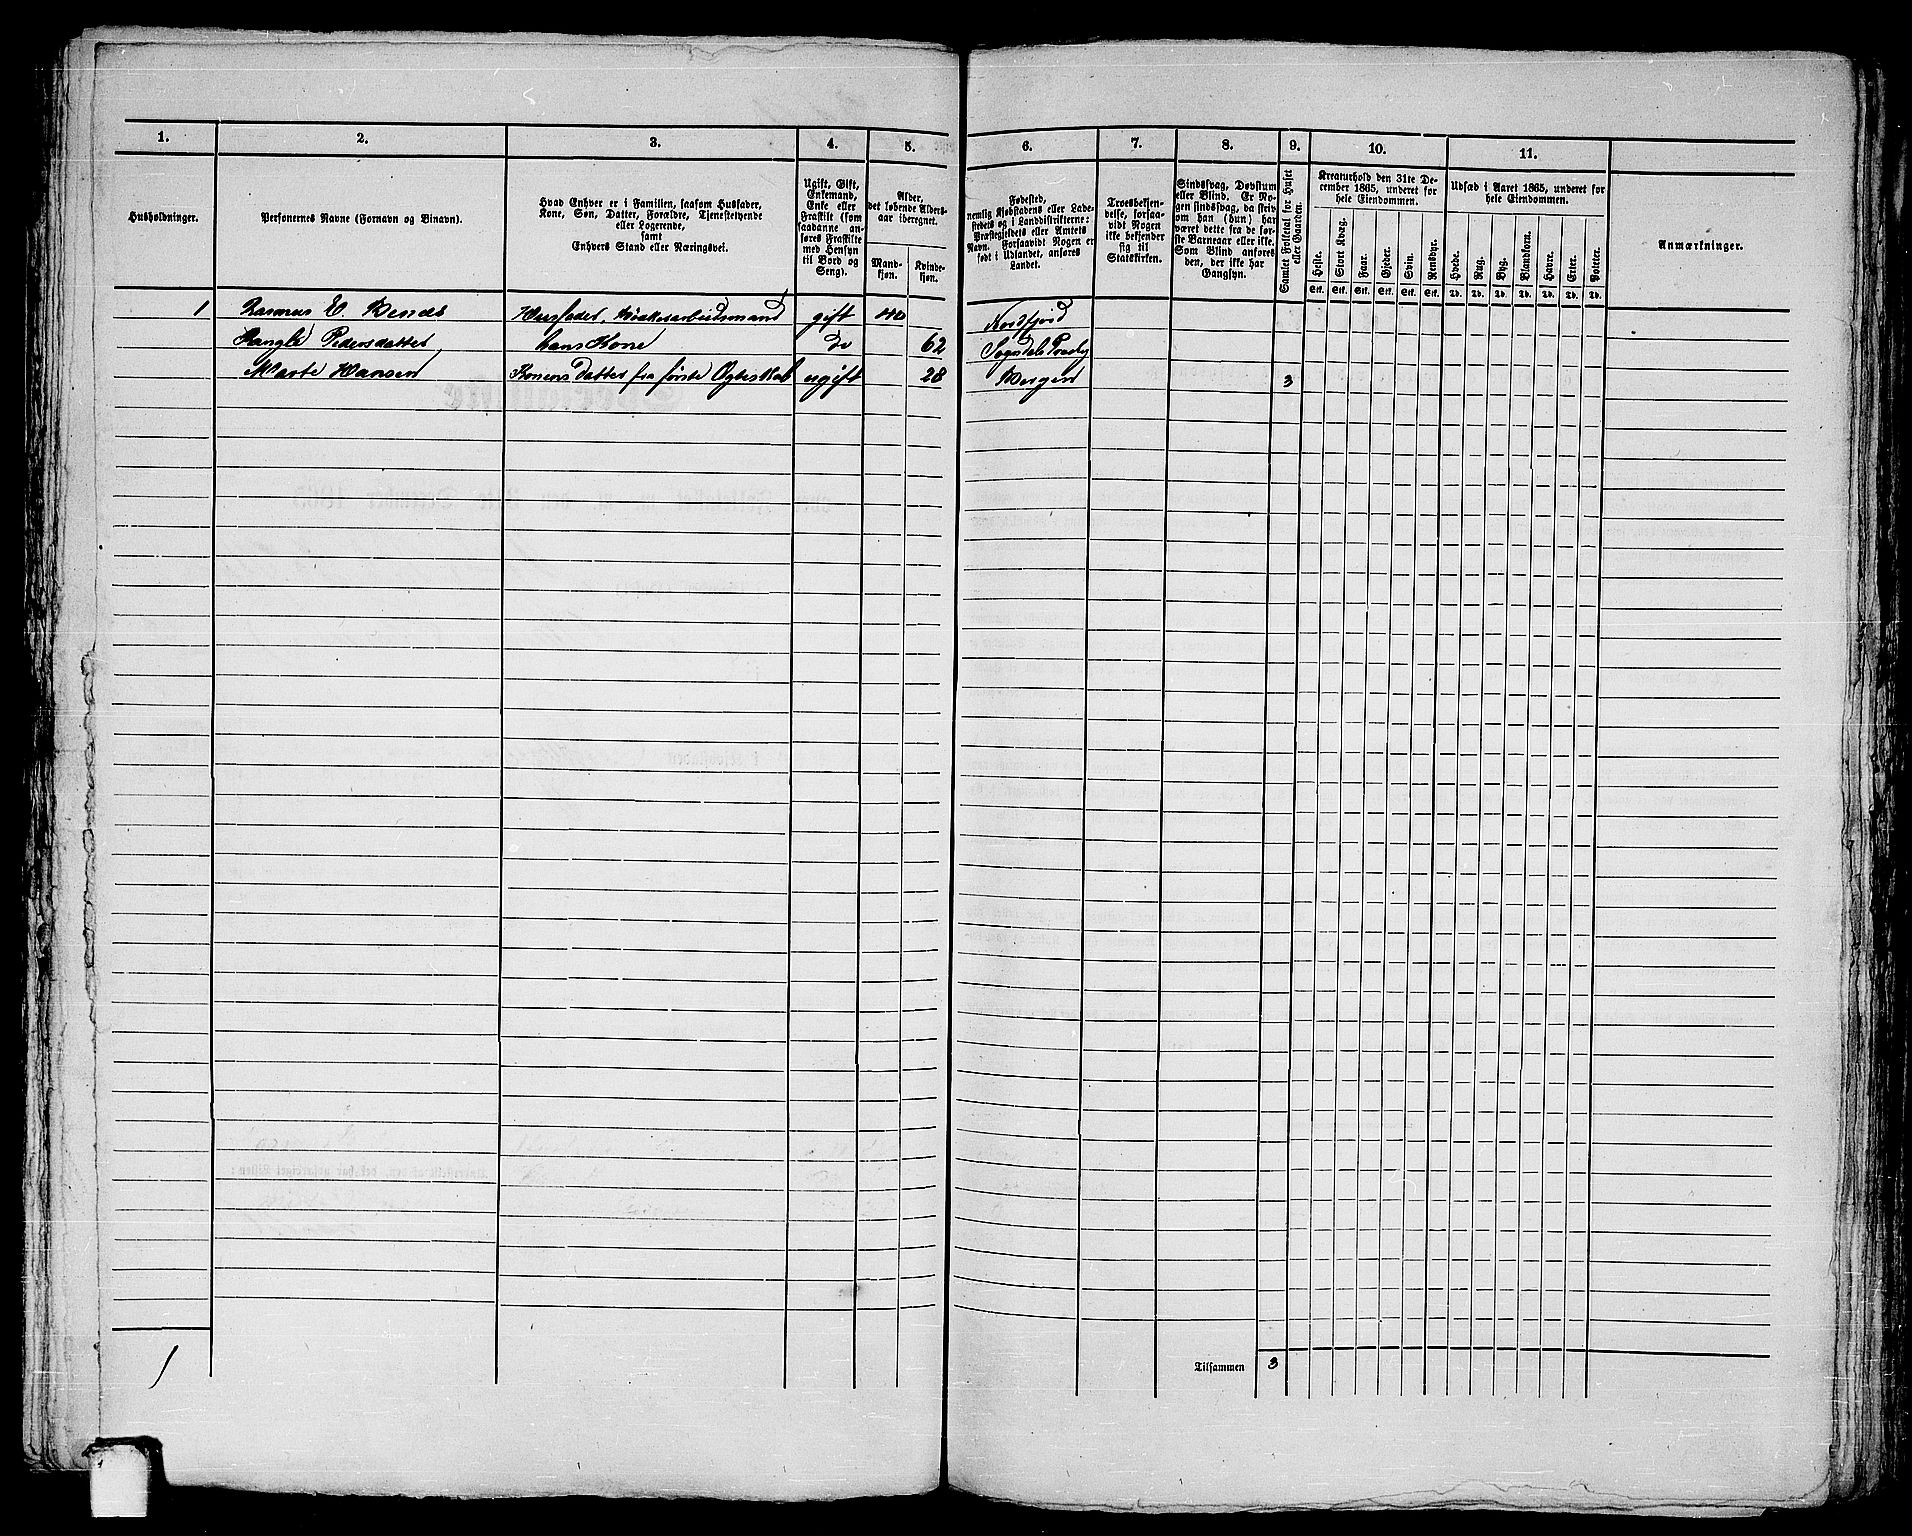 1. 2. 3. 4. 5. 6. 7. 8. 9. 10. 11.
Husholdninger.
Personernes Navne (Fornavn og Binavn).
Hvad Enhver er i Familien, saasom Husfader,
Kone, Søn, Datter, Forældre, Tjenestetyende
eller Logerende,
samt
Enhvers Stand eller Næringsvei.
Ugift, Gift,
Enkemand,
Enke eller
Fraskilt (som
saadanne an-
føres Fraskilte
med Hensyn
til Bord og
Seng).
Alder,
det løbende Alders-
aar iberegnet.
Mand-
kjøn.
Kvinde-
kjøn.
Fødested,
nemlig Kjøbstadens eller Lade-
stedets og i Landdistrikterne:
Præstegjeldets eller Amtets
Navn. Forsaavidt Nogen er
født i Udlandet, anføres
Landet.
Troesbekjen-
delse, forsaa-
vidt Nogen
ikke bekjender
sig til
Statskirken.
Sindssvag, Døvstum
eller Blind. Er No-
gen sindssvag, da skriv
om han (hun) har
været dette fra de før-
ste Barneaar eller ikke.
Som Blind anføres
den, der ikke har
Gangsyn.
Samlet Folketal for Huset
eller Gaarden.
Kreaturhold den 31te De-
cember 1865, underet for
hele Eiendommen.
Heste. Stort Kvæg. Faar. Gjeder. Svin. Rensdyr.
Stk. Stk. Stk. Stk. Stk. Stk.
Udsæd i Aaret 1865, underet for
hele Eiendommen.
Hvede. Rug. Byg. Blandkorn. Havre. Erter. Poteter.
Td. Td. Td. Td. Td. Td. Td.
Anmærkninger.
1 Rasmus E. gift 40 Nordfjord
Rangle Pedersdatter hans Kone do 62 Sogndals
Marte Hansen Konens Datter fra første Ægteskab ugift 28 Bergen 3
1
Tilsammen 3